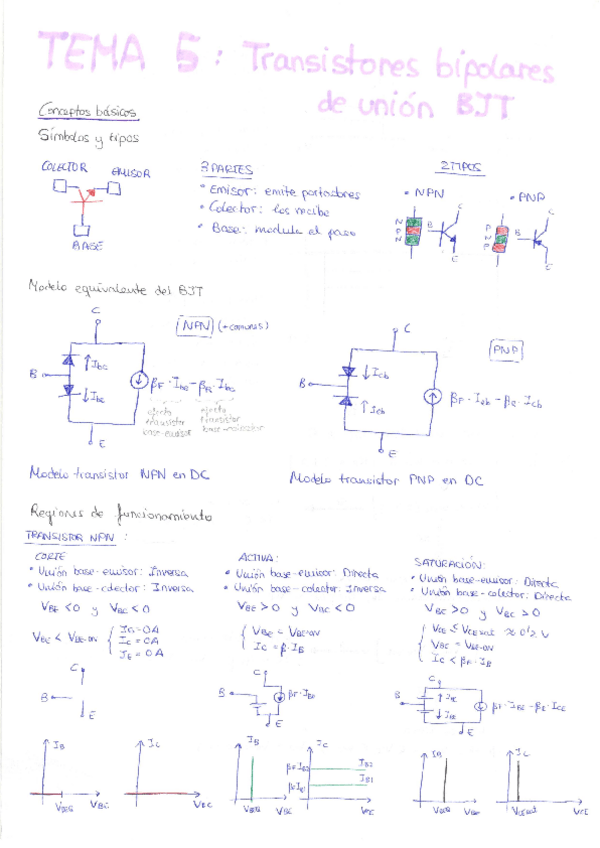 TEMA 5 : Transistores bipolares
de unión BJT
Conceptos básicos
Símbolos y tipos
COLECTOR EMISOR
BASE
3 PARTES
• Emisor: emite portadores
• Colector: los recibe
• Base: modula el paso
2 TIPOS
• NPN
• PNP
N P N
B C E
P N P
B C E
Modelo equivalente del BJT
C
NPN (+ comunes)
B
Ibc
Ibe
βF · Ibe - βR · Ibc
efecto transistor base-emisor
efecto transistor base-colector
E
Modelo transistor NPN en DC
C
PNP
B
Icb
βF · Ieb - βR · Icb
E
Modelo transistor PNP en DC
Regiones de funcionamiento
TRANSISTOR NPN :
CORTE
• Unión base-emisor: Inversa
• Unión base-colector: Inversa
VBE < 0 y VBC < 0
VBE < VBE-ON
IB = 0A
IC = 0A
IE = 0A
C
B
E
IB
VBE
IC
ACTIVA:
• Unión base-emisor: Directa
• Unión base-colector: Inversa
VBE > 0 y VBC < 0
VBE = VBE-ON
IC = β · IB
C
B
E
IB
IC
βF IB2
IB2
βF IB1
IB1
SATURACIÓN:
• Unión base-emisor: Directa
• Unión base-colector: Directa
VBE > 0 y VBC > 0
VBE = VBE-ON
IC < βF · IB
C
B
E
IB
IC